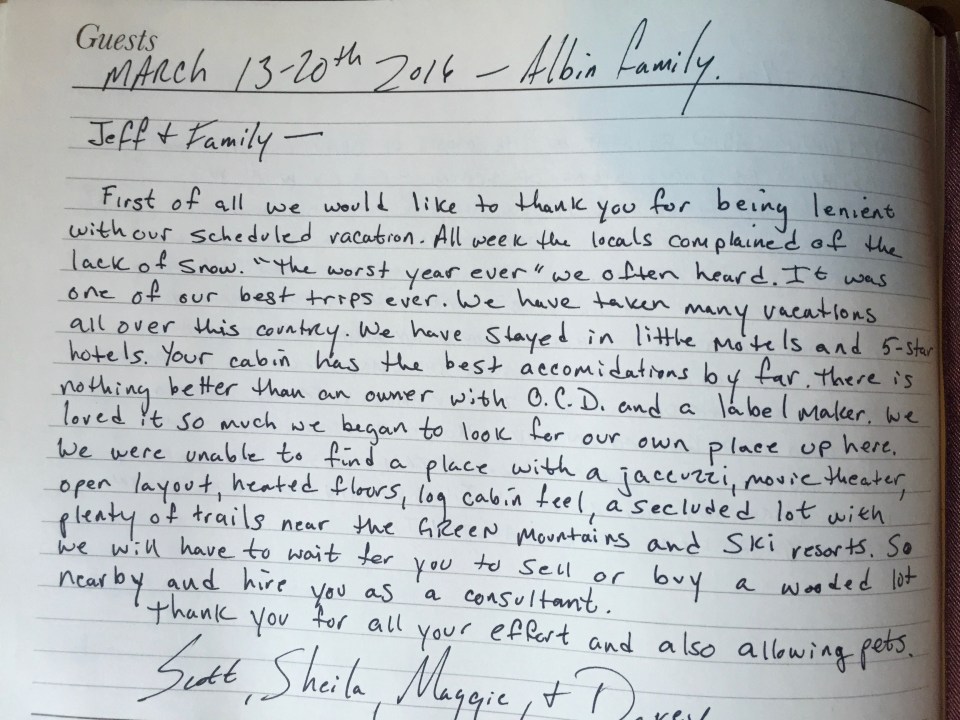 Guests
MARCH 13-20th 2016 – Albin Family.
Jeff + Family –
First of all we would like to thank you for being lenient
with our scheduled vacation. All week the locals complained of the
lack of snow. "the worst year ever" we often heard. It was
one of our best trips ever. We have taken many vacations
all over this country. We have stayed in little motels and 5-star
hotels. Your cabin has the best accomidations by far. There is
nothing better than an owner with O.C.D. and a label maker. We
loved it so much we began to look for our own place up here.
We were unable to find a place with a jaccuzzi, movie theater,
open layout, heated floors, log cabin feel, a secluded lot with
plenty of trails near the GREEN Mountains and Ski resorts. So
we will have to wait for you to sell or buy a wooded lot
nearby and hire you as a consultant.
Thank you for all your effort and also allowing pets.
Scott, Sheila, Maggie, +